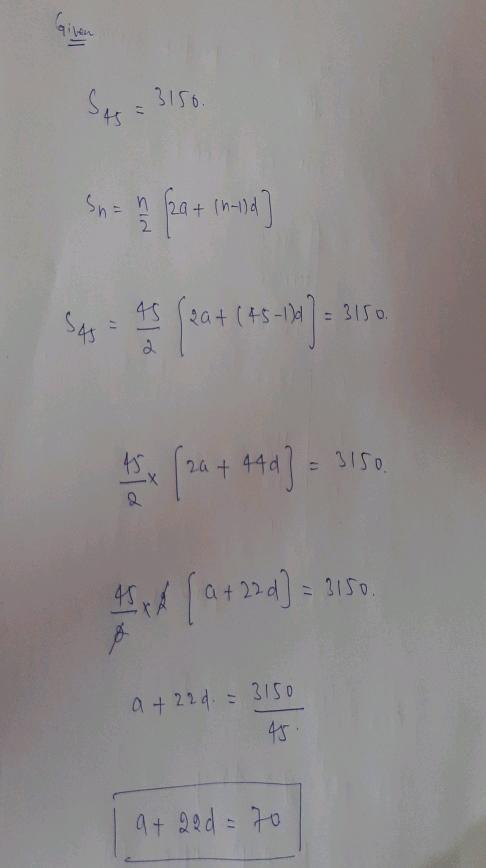 Given
S45 = 3150.
Sn = n/2 [2a + (n-1)d]
S45 = 45/2 [2a + (45-1)d] = 3150.
45/2 x [2a + 44d] = 3150.
45/2 x 2 [a + 22d] = 3150.
a + 22d. = 3150/45.
a + 22d = 70